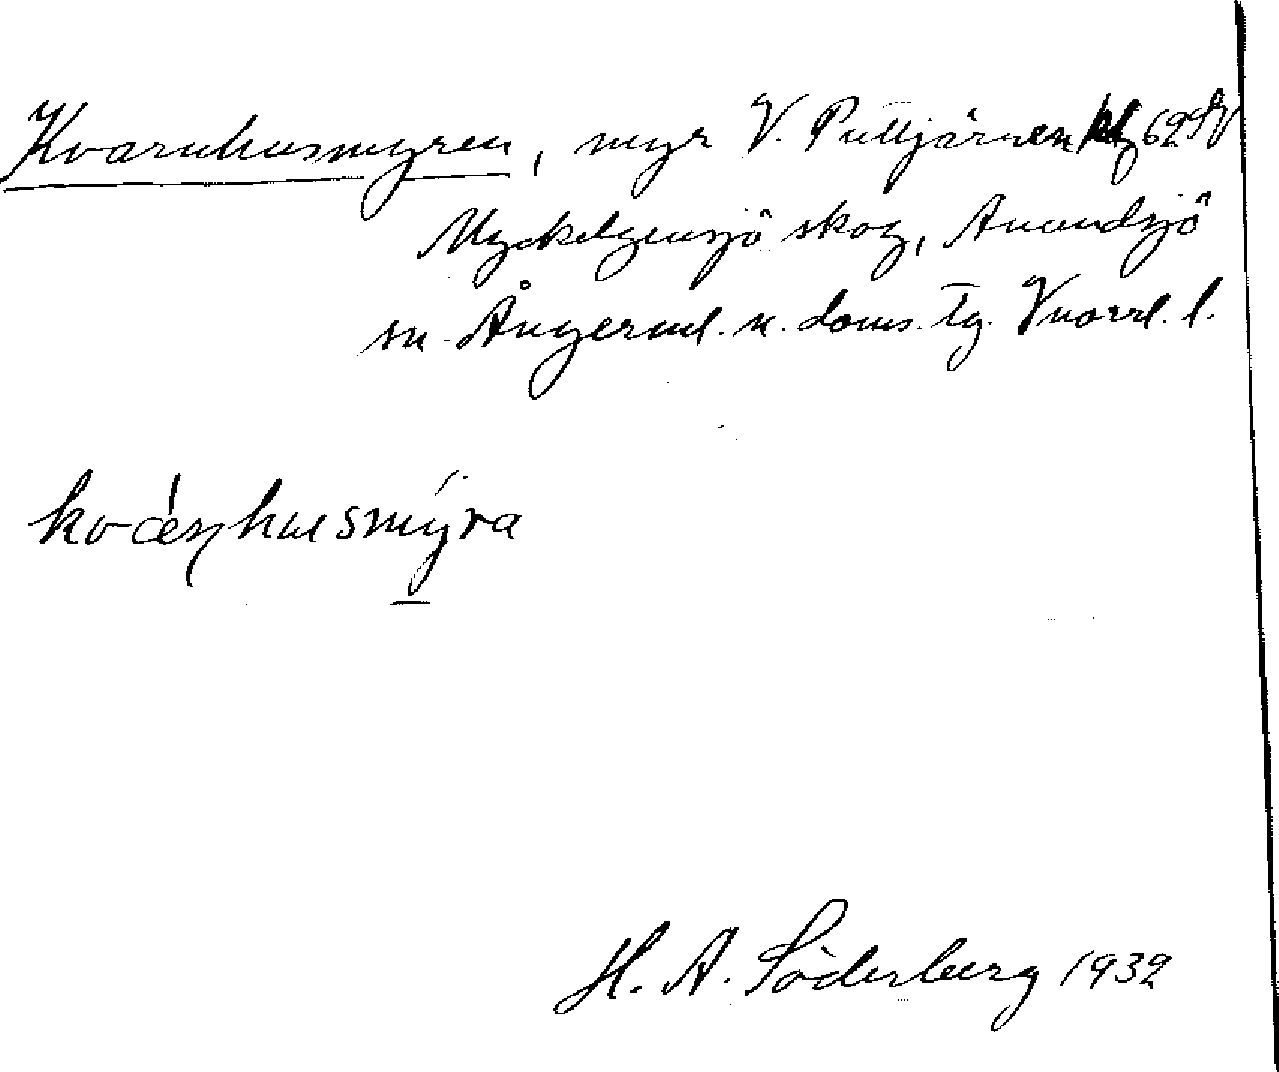 Kvarnhusmyren, myr V. Pulltjärnen 62
Myckelgensjö skog, Anundsjö
sn. Ångerml. n. doms. tg. Vnorrl. l.
kvánhusmýra
H. A. Söderberg 1932